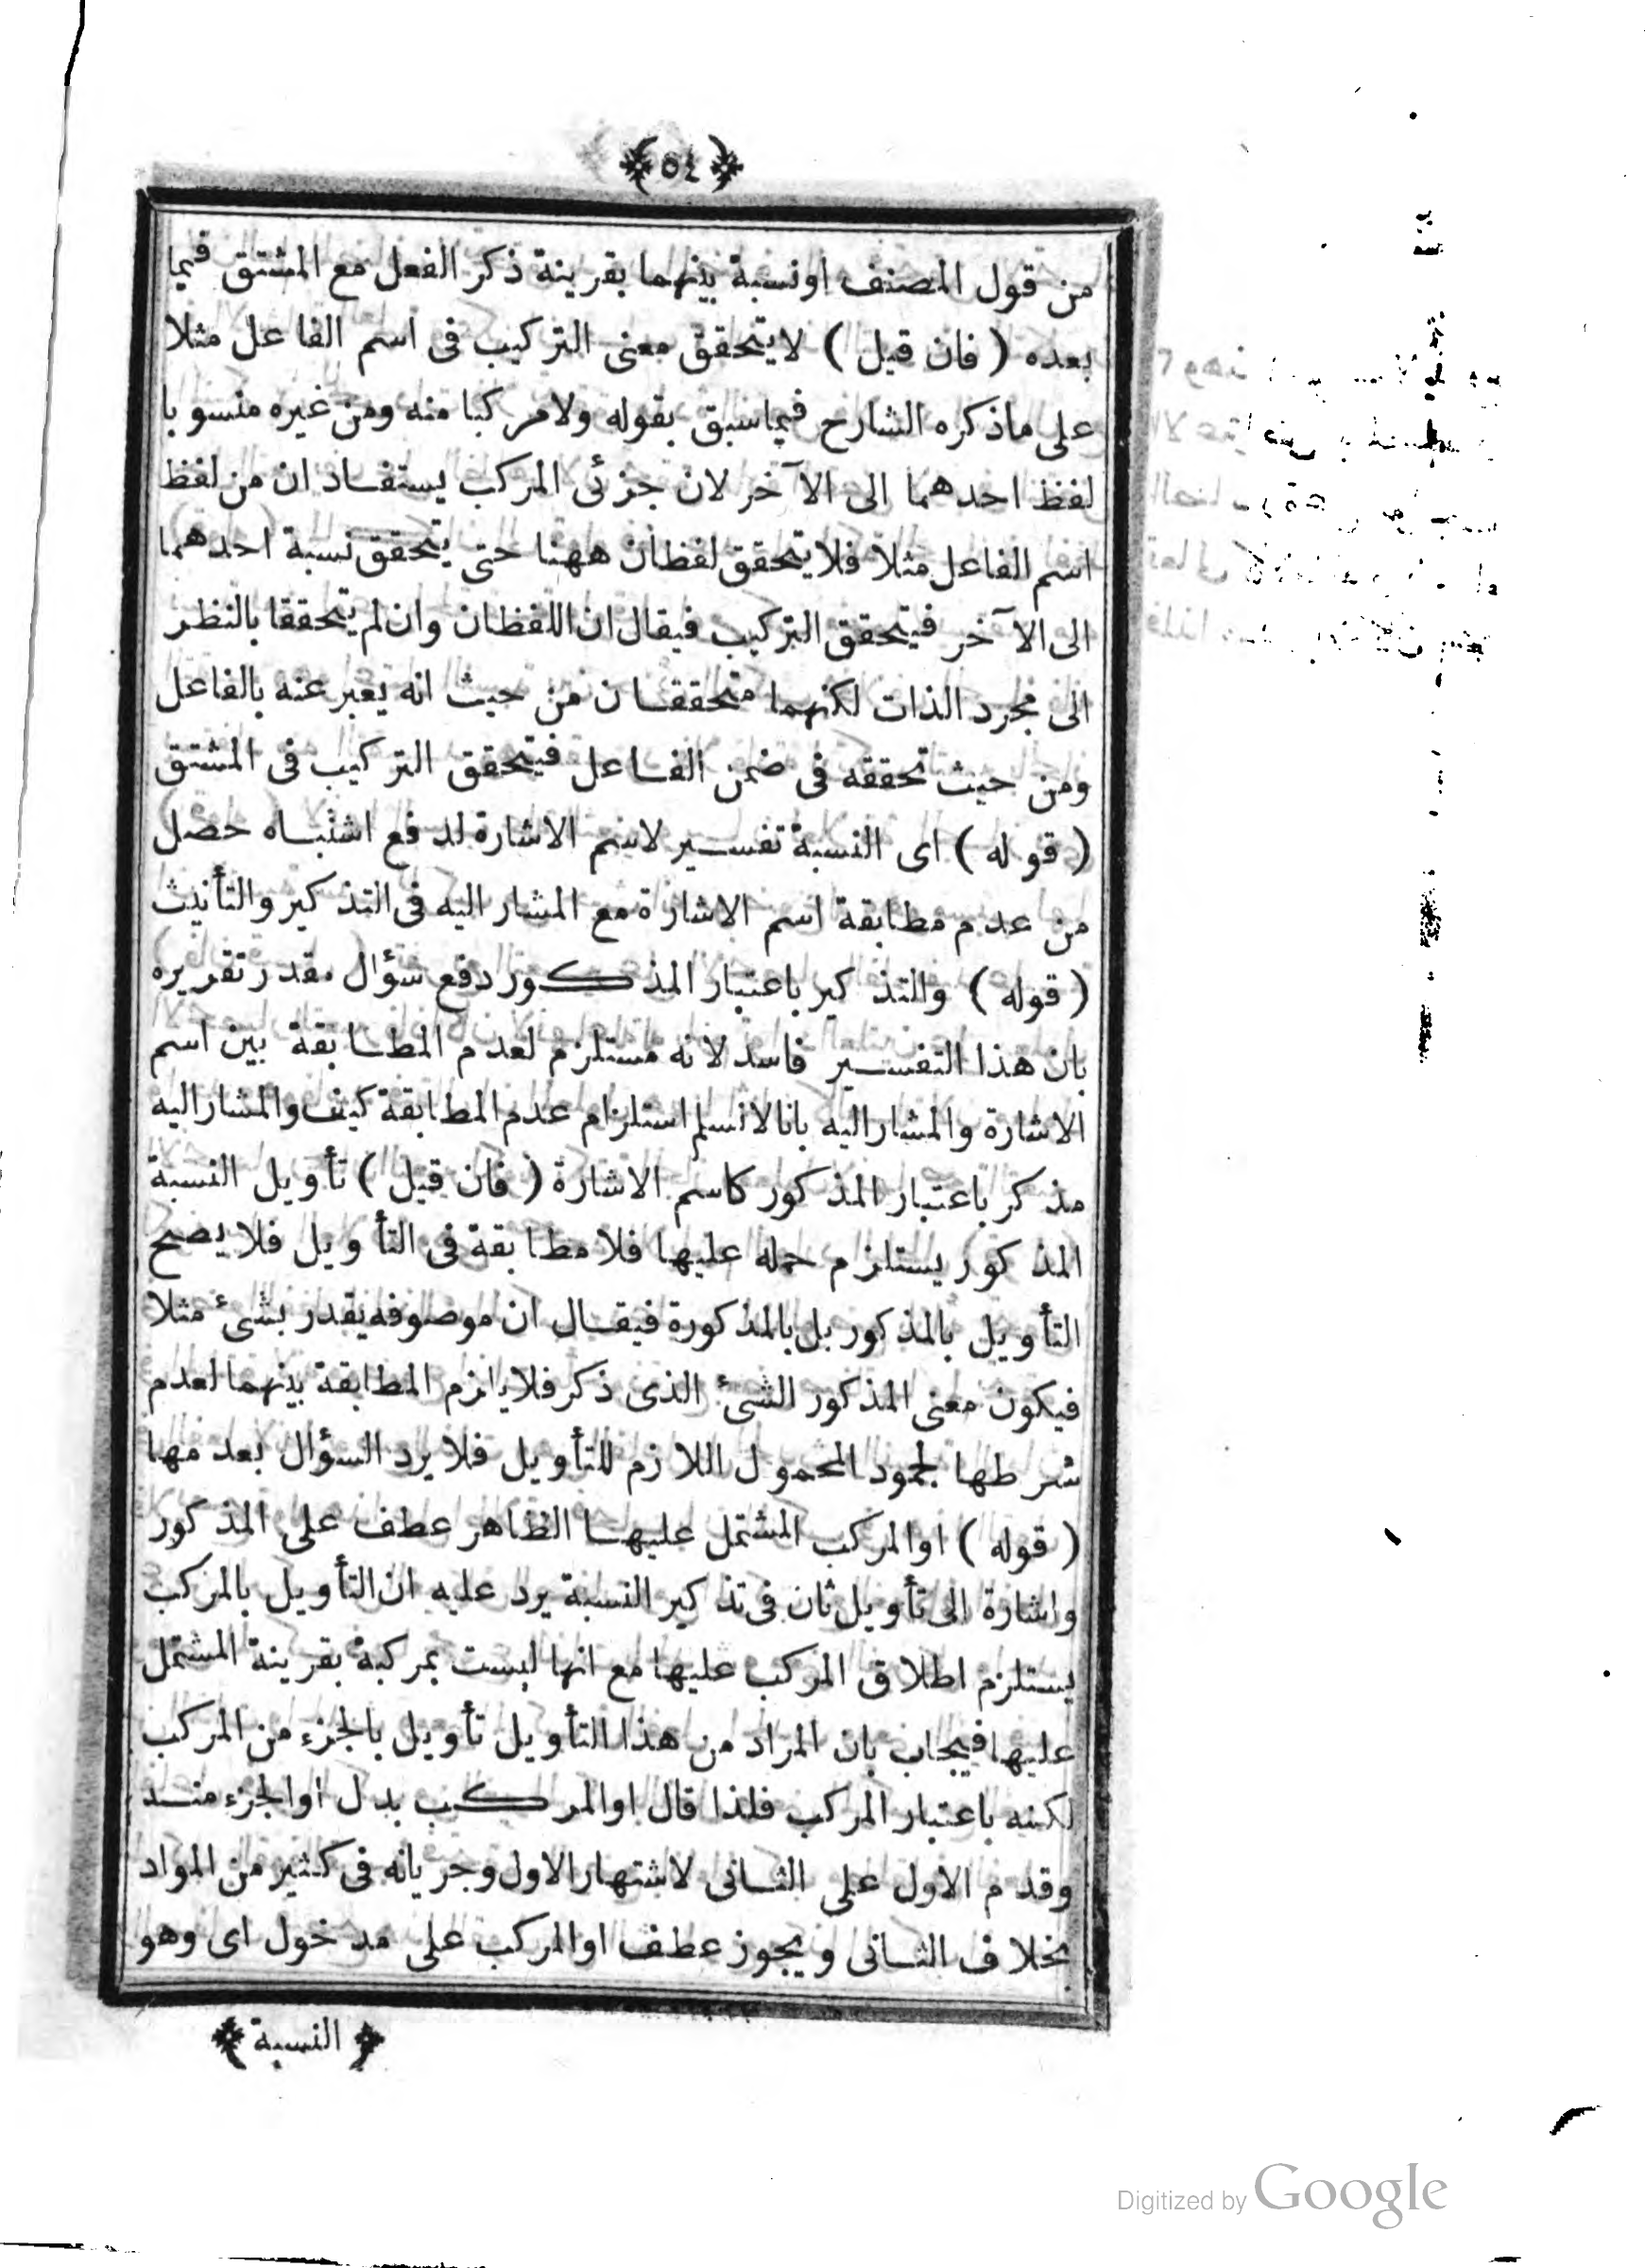 ﴿ ٥٤ ﴾
من قول المصنف اونسبة بينهما بقرينة ذكر الفعل مع المشتق فيما
بعده ( فان قيل ) لايتحقق معنى التركيب فى اسم الفاعل مثلا
على ماذكره الشارح فيماسبق بقوله ولامركبا منه ومن غيره منسوبا
لفظ احدهما الى الآخر لان جزئى المركب يستفاد ان من لفظ
اسم الفاعل مثلا فلايتحقق لفظان ههنا حتى يتحقق نسبة احدهما
الى الآخر فيتحقق التركيب فيقال ان اللفظان وان لم يتحققا بالنظر
الى مجرد الذات لكنهما متحققان من حيث انه يعبر عنه بالفاعل
ومن حيث تحققه فى ضمن الفاعل فيتحقق التركيب فى المشتق
( قوله ) اى النسبة تفسير لاسم الاشارة لدفع اشتباه حصل
من عدم مطابقة اسم الاشارة مع المشار اليه فى التذكير والتأنيث
( قوله ) والتذكير باعتبار المذكور دفع سؤال مقدر تقريره
بان هذا التفسير فاسد لانه مستلزم لعدم المطابقة بين اسم
الاشارة والمشاراليه بانالانسلم استلزام عدم المطابقة كيف والمشاراليه
مذكر باعتبار المذكور كاسم الاشارة ( فان قيل ) تأويل النسبة
المذكور يستلزم حمله عليها فلا مطابقة فى التأويل فلا يصح
التأويل بالمذكور بل بالمذكورة فيقال ان موصوفه يقدر بشئ مثلا
فيكون معنى المذكور الشئ الذى ذكر فلايلزم المطابقة بينهما لعدم
شرطها لجمود المحمول اللازم للتأويل فلا يرد السؤال بعدمها
( قوله ) اوالمركب المشتمل عليها الظاهر عطف على المذكور
واشارة الى تأويل ثان فى تذكير النسبة يرد عليه ان التأويل بالمركب
يستلزم اطلاق المركب عليها مع انها ليست بمركبة بقرينة المشتمل
عليها فيجاب بان المراد من هذا التأويل تأويل بالجزء من المركب
لكنه باعتبار المركب فلذا قال اوالمركب بدل اوالجزء منه
وقدم الاول على الثانى لاشتهار الاول وجريانه فى كثير من المواد
بخلاف الثانى ويجوز عطف اوالمركب على مدخول اى وهو
﴿ النسبة ﴾
Digitized by Google